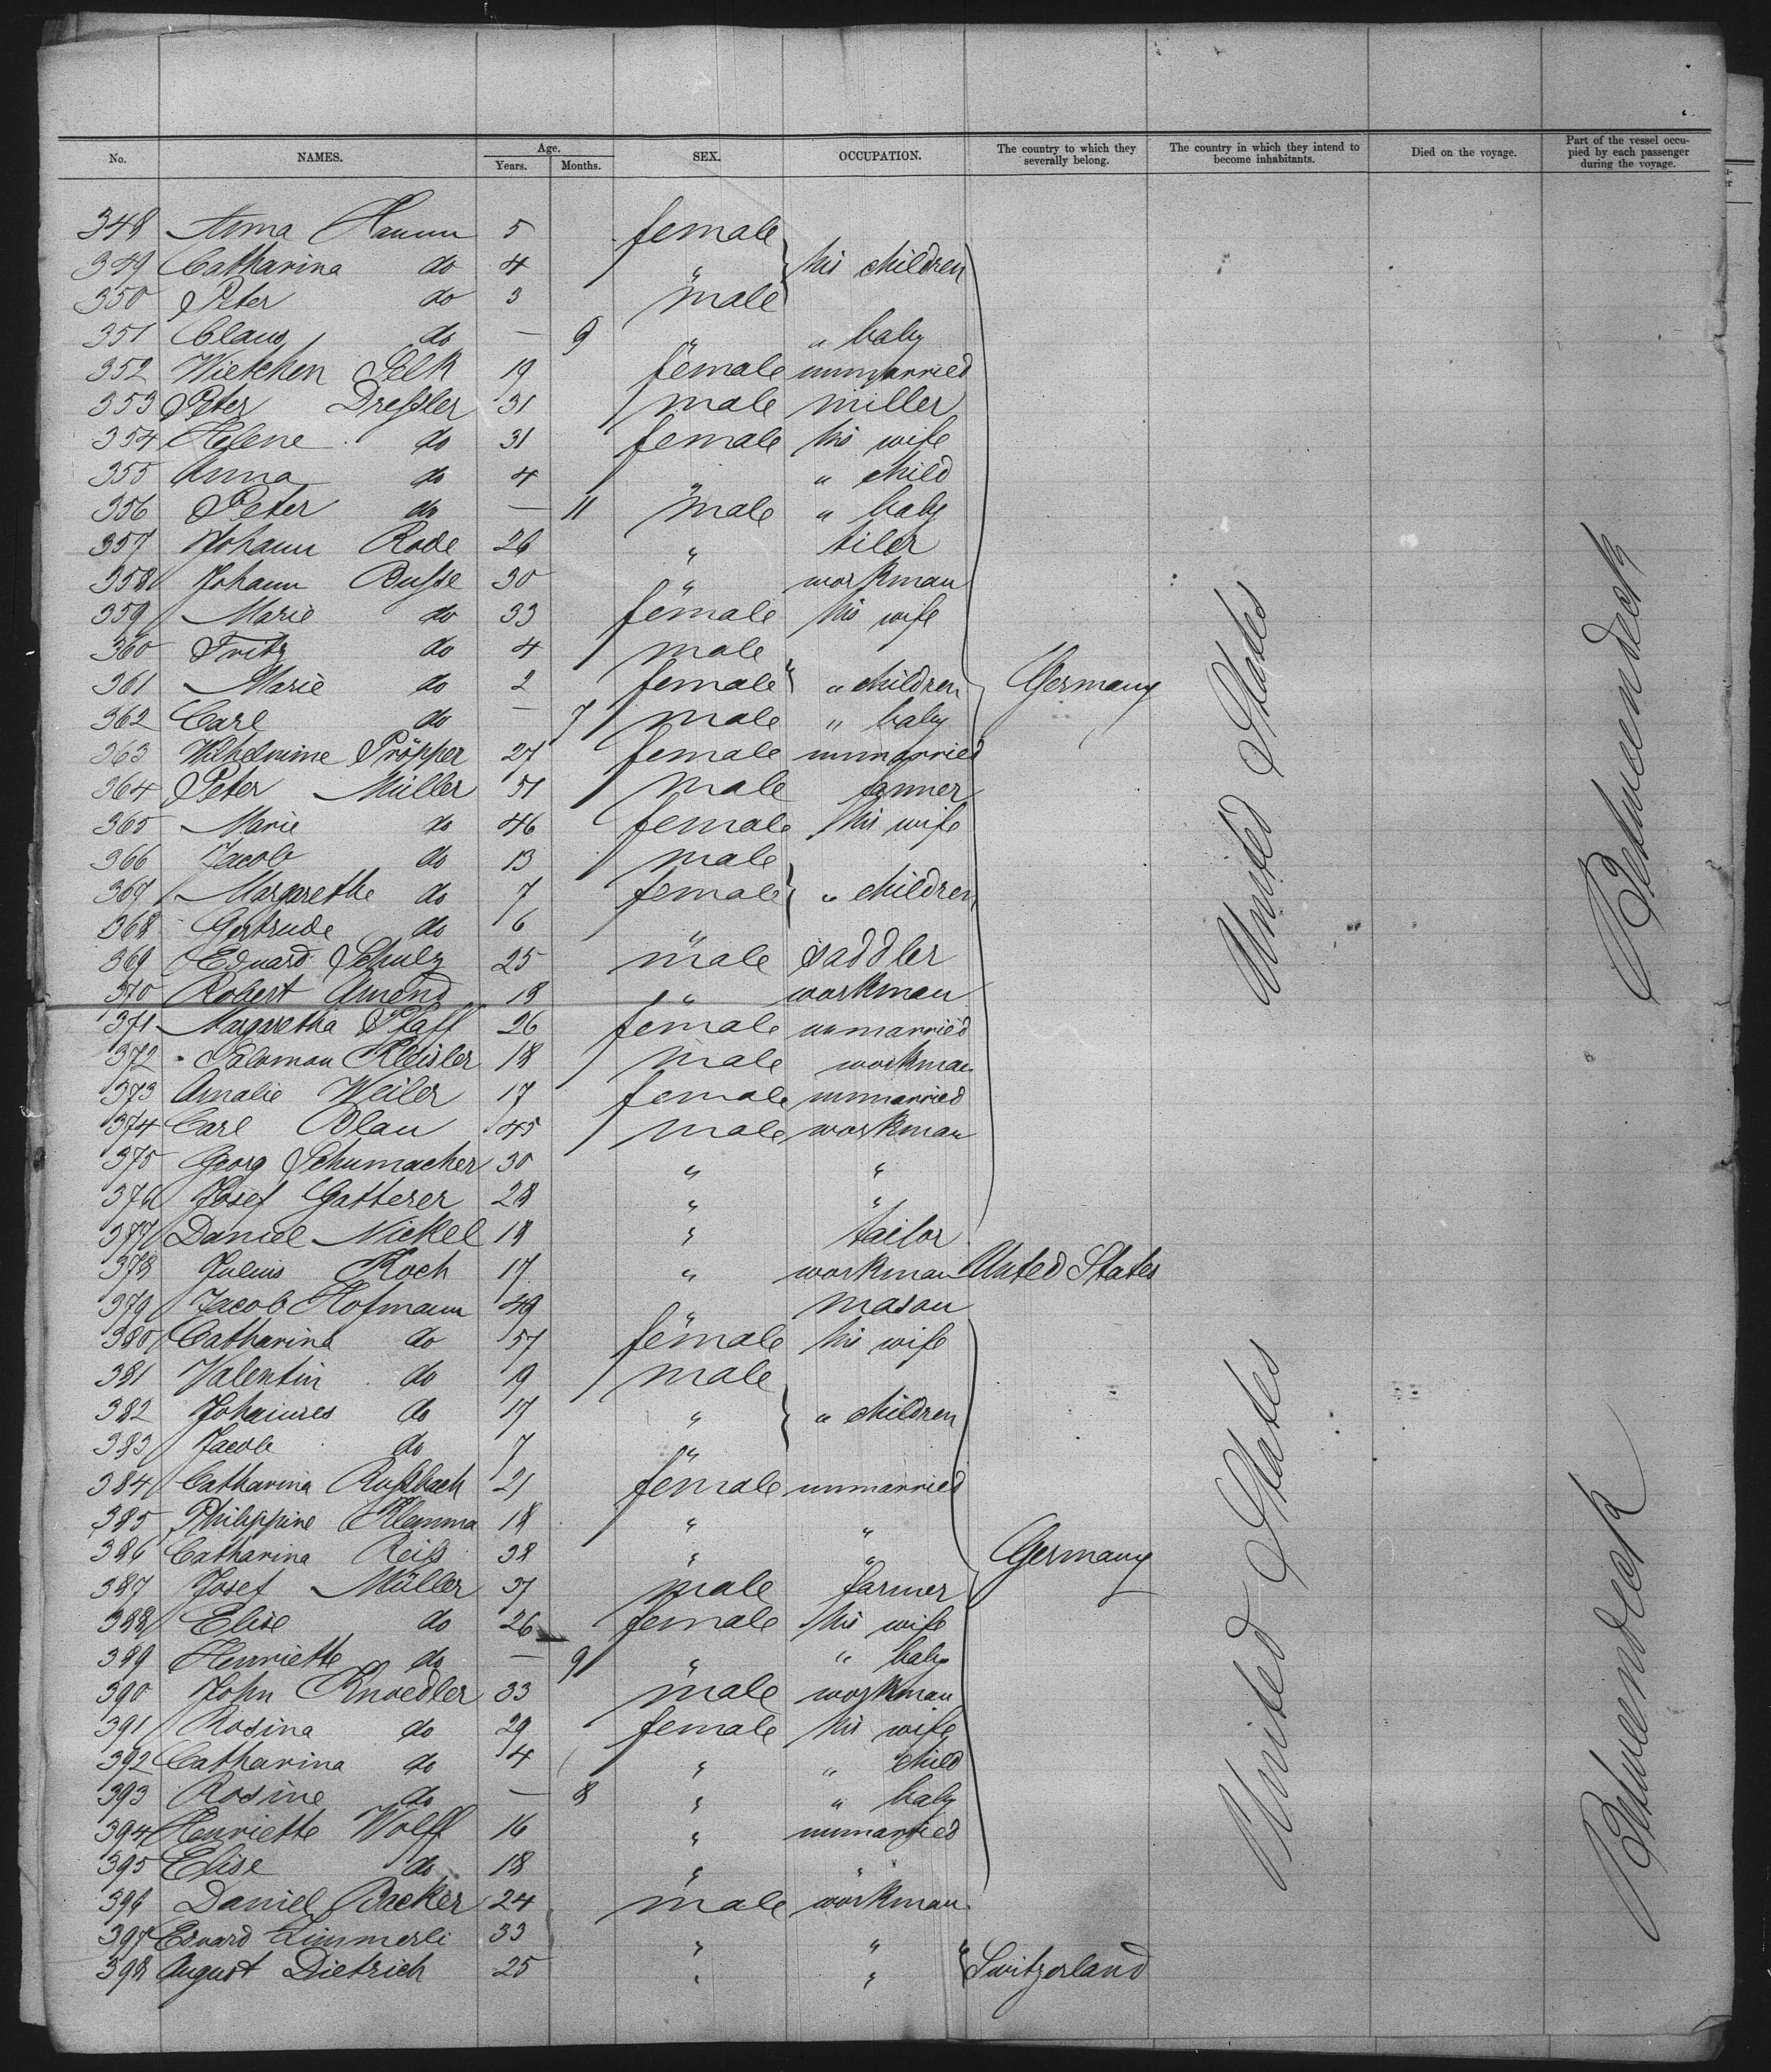 No. NAMES. Age. Years. Months. SEX. OCCUPATION. The country to which they severally belong. The country in which they intend to become inhabitants. Died on the voyage. Part of the vessel occupied by each passenger during the voyage.
348 Anna Hamm 5 female
349 Catharina do 4 " his children
350 Peter do 3 male
351 Claus do — 9 " " baby
352 Wietchen Selk 19 female unmarried
353 Peter Dreßler 31 male miller
354 Helene do 31 female his wife
355 Anna do 4 " " child
356 Peter do — 11 male " baby
357 Johann Rode 26 " tiler
358 Johann Busse 30 " workman
359 Marie do 33 female his wife
360 Fritz do 4 male
361 Marie do 2 female " children Germany United States Betweendeck
362 Carl do — 7 male " baby
363 Wilhelmine Pröpper 27 female unmarried
364 Peter Müller 51 male farmer
365 Marie do 46 female his wife
366 Jacob do 13 male
367 Margarethe do 7 female " children
368 Gertrude do 6 "
369 Eduard Schulz 25 male saddler
370 Robert Amend 18 " workman
371 Margaretha Pfaff 26 female unmarried
372 Salomon Kleisler 18 male workman
373 Amalie Weiler 17 female unmarried
374 Carl Blau 45 male workman
375 Georg Schumacher 30 " "
376 Josef Gatterer 28 " "
377 Daniel Nickel 18 " tailor
378 Julius Koch 17 " workman United States
379 Jacob Hofmann 49 " mason
380 Catharina do 57 female his wife
381 Valentin do 19 male
382 Johannes do 17 " " children
383 Jacob do 7 "
384 Catharina Rußbach 21 female unmarried
385 Philippine Klamma 18 " "
386 Catharina Reiß 38 " "
387 Josef Müller 31 male farmer Germany United States Betweendeck
388 Elise do 26 female his wife
389 Henriette do — 9 " " baby
390 John Knoedler 33 male workman
391 Rosina do 29 female his wife
392 Catharina do 4 " " child
393 Rosine do — 8 " " baby
394 Henriette Wolff 16 " unmarried
395 Elise do 18 " "
396 Daniel Becker 24 male workman
397 Eduard Zimmerli 33 " "
398 August Dietrich 25 " " Switzerland